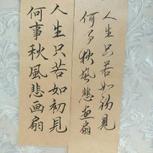 人生只苦如初見
何事秋風悲画扇
人生只苦如初見
何事秋風悲画扇